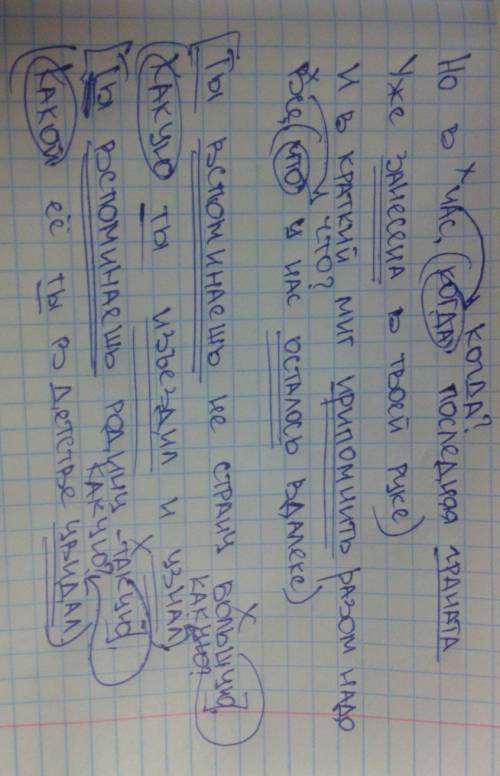 Но в час, когда последняя граната
когда?
Уже занесена в твоей руке)
И в краткий миг припомнить разом надо
что?
Все, что у нас осталось вдалеке)
[Ты вспоминаешь не страну большую],
какую?
Какую ты изъездил и узнал,
[Ты вспоминаешь родину - такую],
какую?
Какой её ты в детстве увидал)